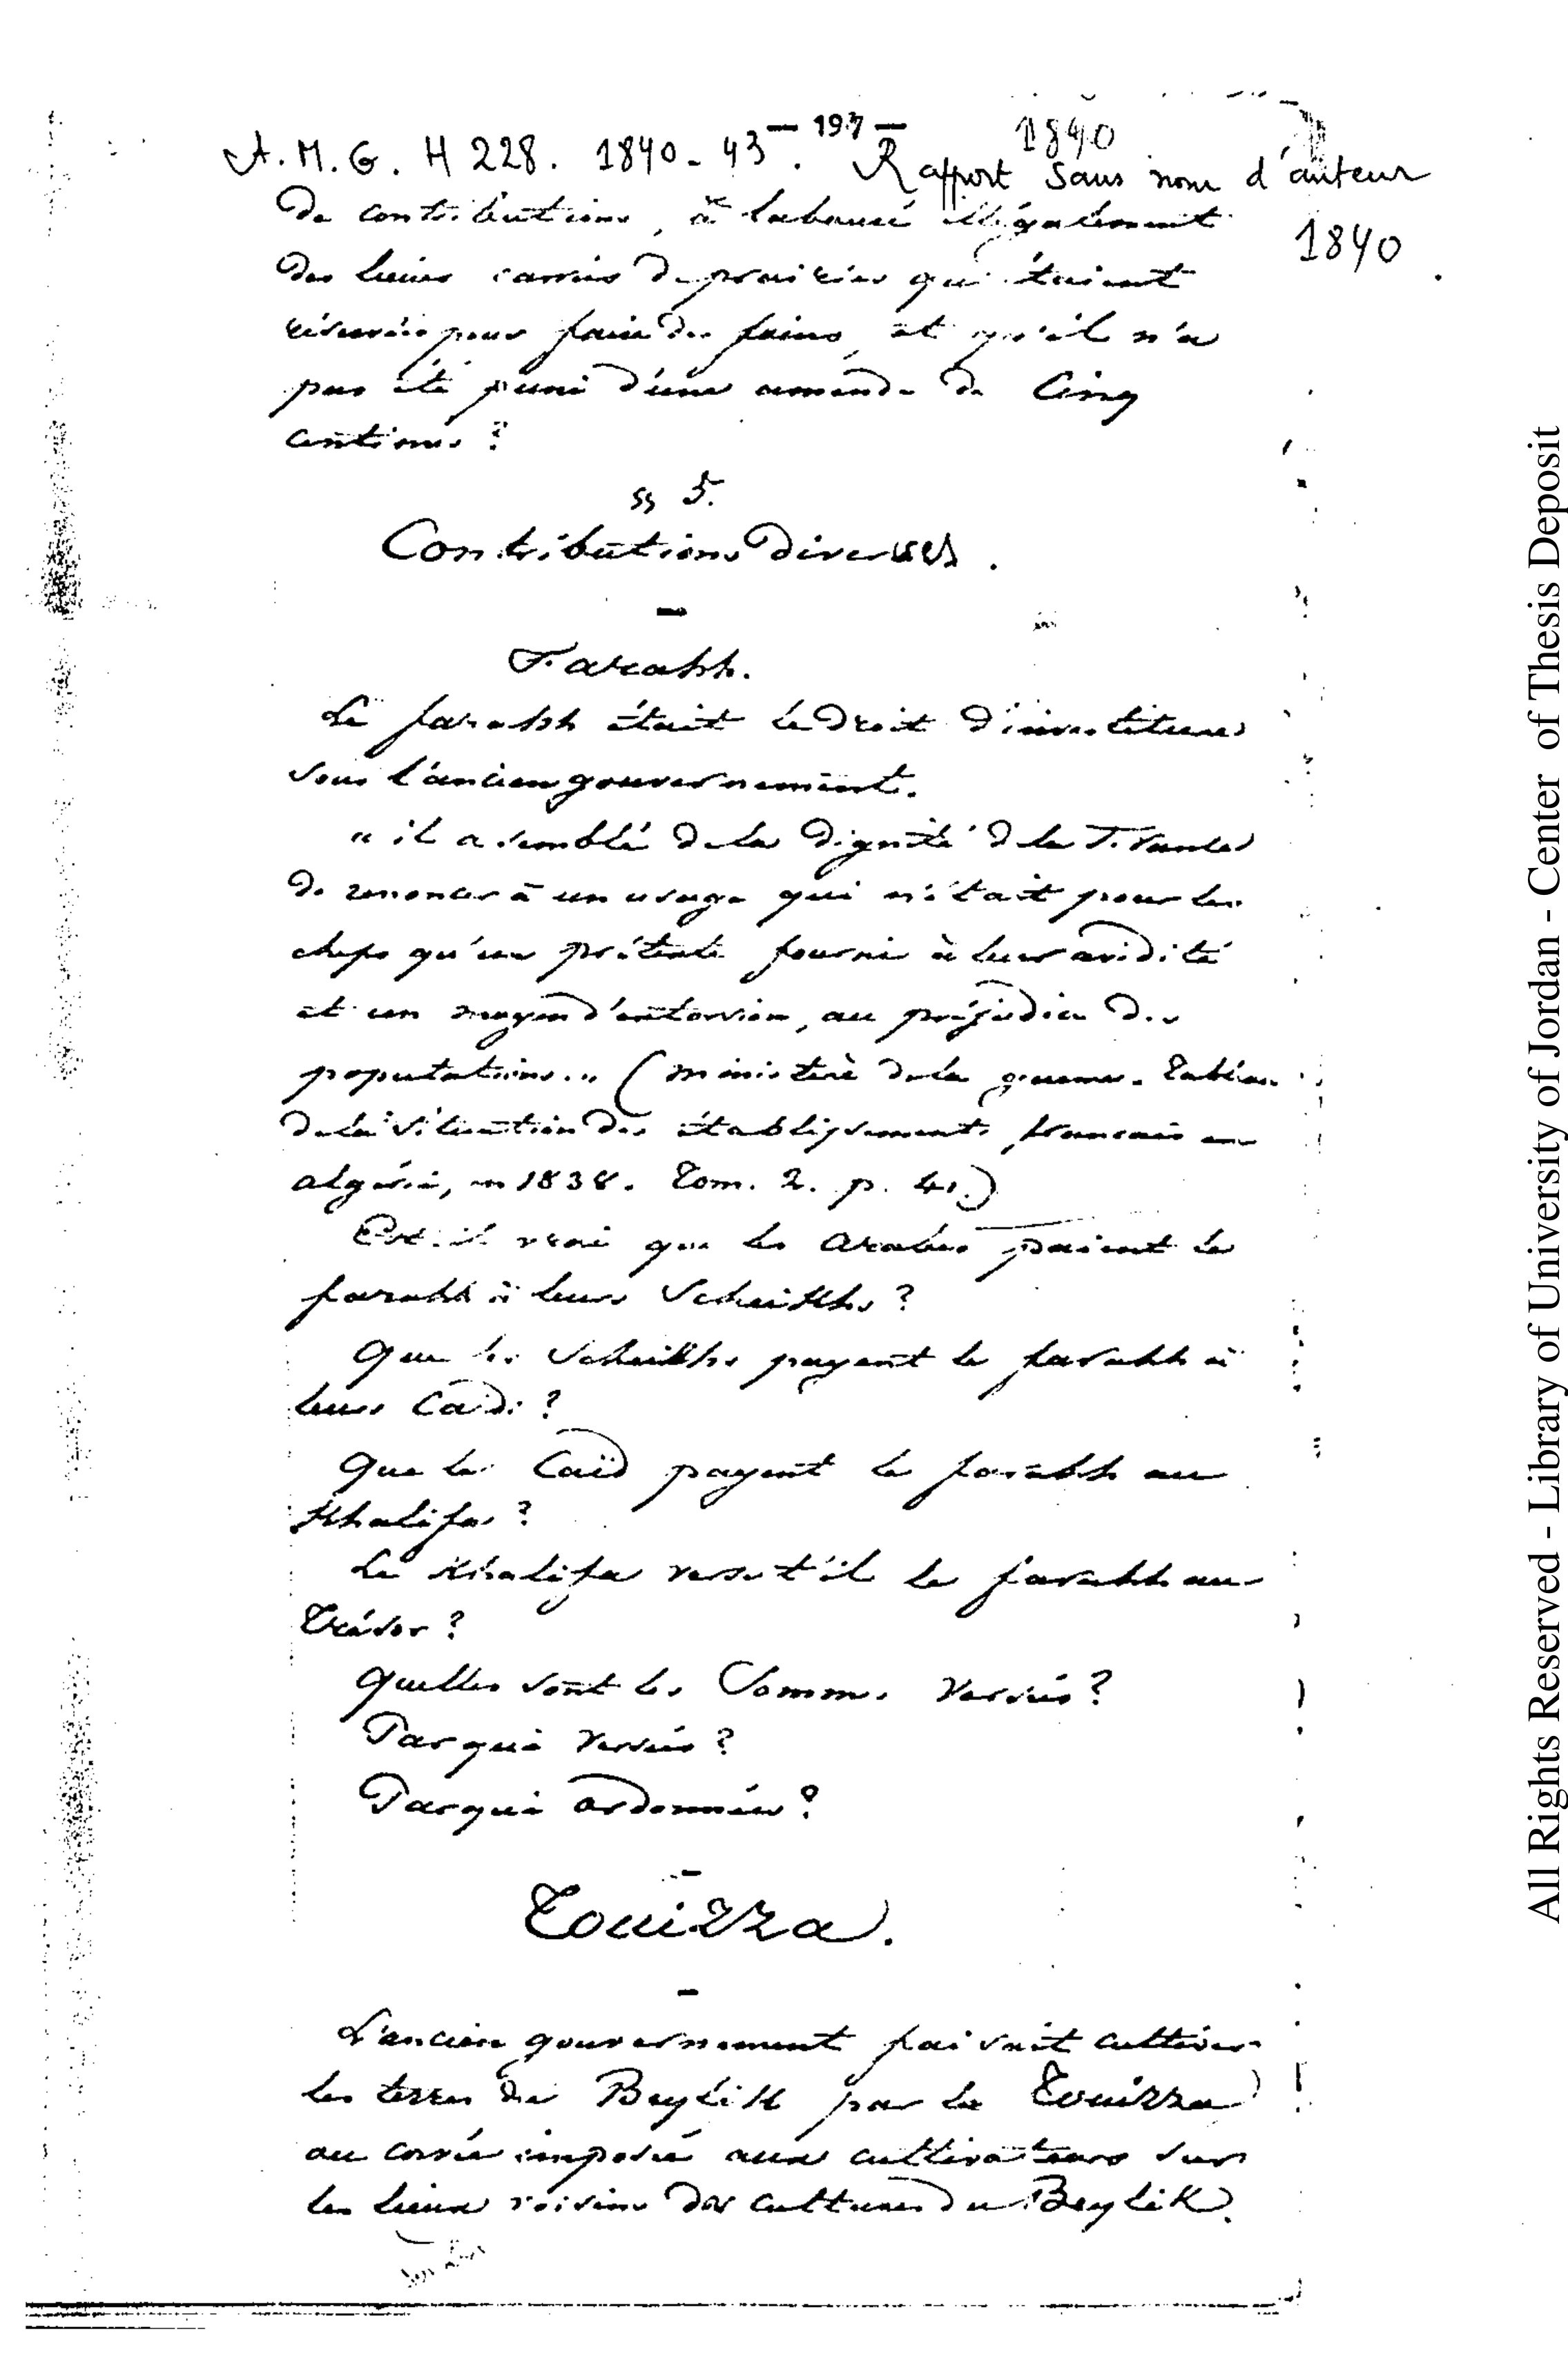 — 197 —
A.M.G. H 228. 1840-43. Rapport sans nom d'auteur
1840
1840.
de contributions, a labouré illégalement
des lieues carrées de prairies qui étaient
réservées pour faire des foins, et qu'il n'a
pas été puni d'une amende de Cinq
centimes ?
§§ 5.
Contributions diverses.
—
Farahh.
Le farahh était le droit d'investiture
sous l'ancien gouvernement.
" il a semblé de la dignité de la France
de renoncer à un usage qui n'était pour les
chefs qu'un prétexte fourni à leur avidité
et un moyen d'extorsion, au préjudice des
populations. " (ministère de la guerre. Tableau
de la situation des établissements français en
algérie, en 1838. Tom. 2. p. 41.)
Est-il vrai que les arabes paient le
farahh à leurs Scheikhs ?
Que les Scheikhs payent le farahh à
leurs Caïds ?
Que les Caïd payent le farahh au
Khalifa ?
Le Khalifa verse t'il le farahh au
Trésor ?
Quelles sont les Sommes versées ?
Par qui versées ?
Par qui ordonnées ?
—
Touizza.
—
L'ancien gouvernement faisait cultiver
les terres du Beylik par la Touizza
ou corvée imposée aux cultivateurs sur
les lieux voisins des cultures du Beylik.
All Rights Reserved - Library of University of Jordan - Center of Thesis Deposit